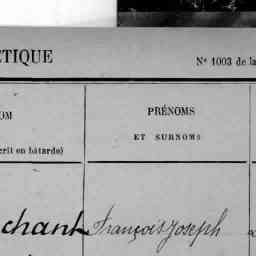 ÉTIQUE
Nº 1003 de la
OM
PRÉNOMS
ET SURNOMS
crit en bâtarde)
chant François Joseph